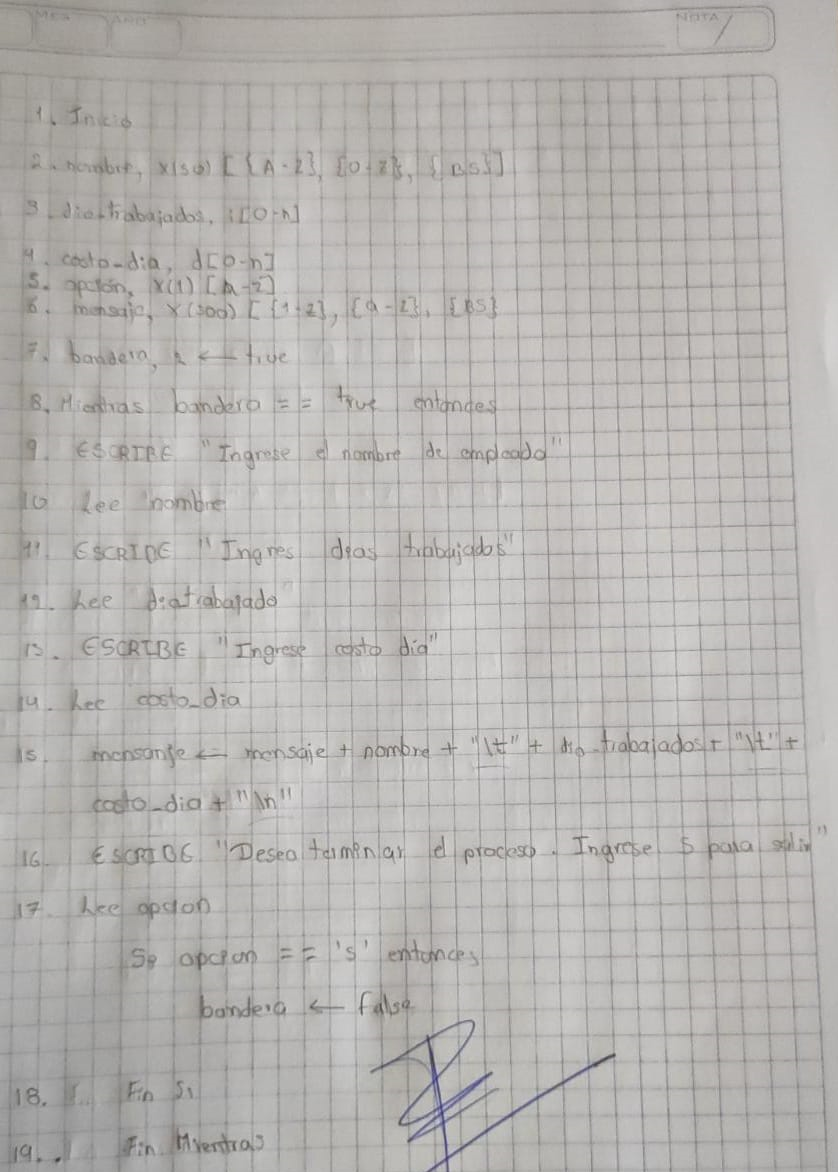 MES AÑO NOTA
1. Inicio
2. nombre, x(50) [{A-Z}, {0-Z}, {BS}]
3. dia-trabajados, i[0-n]
4. costo-dia, d[0-n]
5. opcion, x(1) [A-Z]
6. mensaje, x(300) [{1-Z}, {a-Z}, {BS}
7. bandera, ← true
8. Mientras bandera == true entondes
9. ESCRIBE "Ingrese el nombre de empleado"
10 Lee nombre
11 ESCRIBE "Ingres dias trabajados"
12. Lee diatrabajado
13. ESCRIBE "Ingrese costo dia"
14. Lee costo_dia
15. mensanje ← mensaje + nombre + "\t" + dia-trabajados + "\t" +
costo_dia + "\n"
16 ESCRIBE "Desea terminar el proceso. Ingrese S para salir"
17 Lee opcion
Si opcion == 's' entonces
bandera ← false
18. Fin Si
19. Fin Mientras